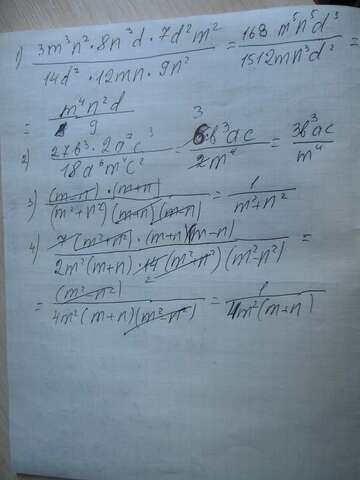 1) 3m³n²·8n³d·7d²m² / 14d²·12mn·9n² = 168 m⁵n⁵d³ / 1512mn³d² =
= m⁴n²d / 9
2) 27b³·2a⁷c³ / 18a⁶m⁴c² = 6b³ac / 2m⁴ = 3b³ac / m⁴
3) (m-n)·(m+n) / (m²+n²)(m+n)(m-n) = 1 / m²+n²
4) 7(m²+n²)·(m+n)(m-n) / 2m²(m+n)·14(m²+n²)(m²-n²) =
= (m²-n²) / 4m²(m+n)(m²-n²) = 1 / 4m²(m+n)